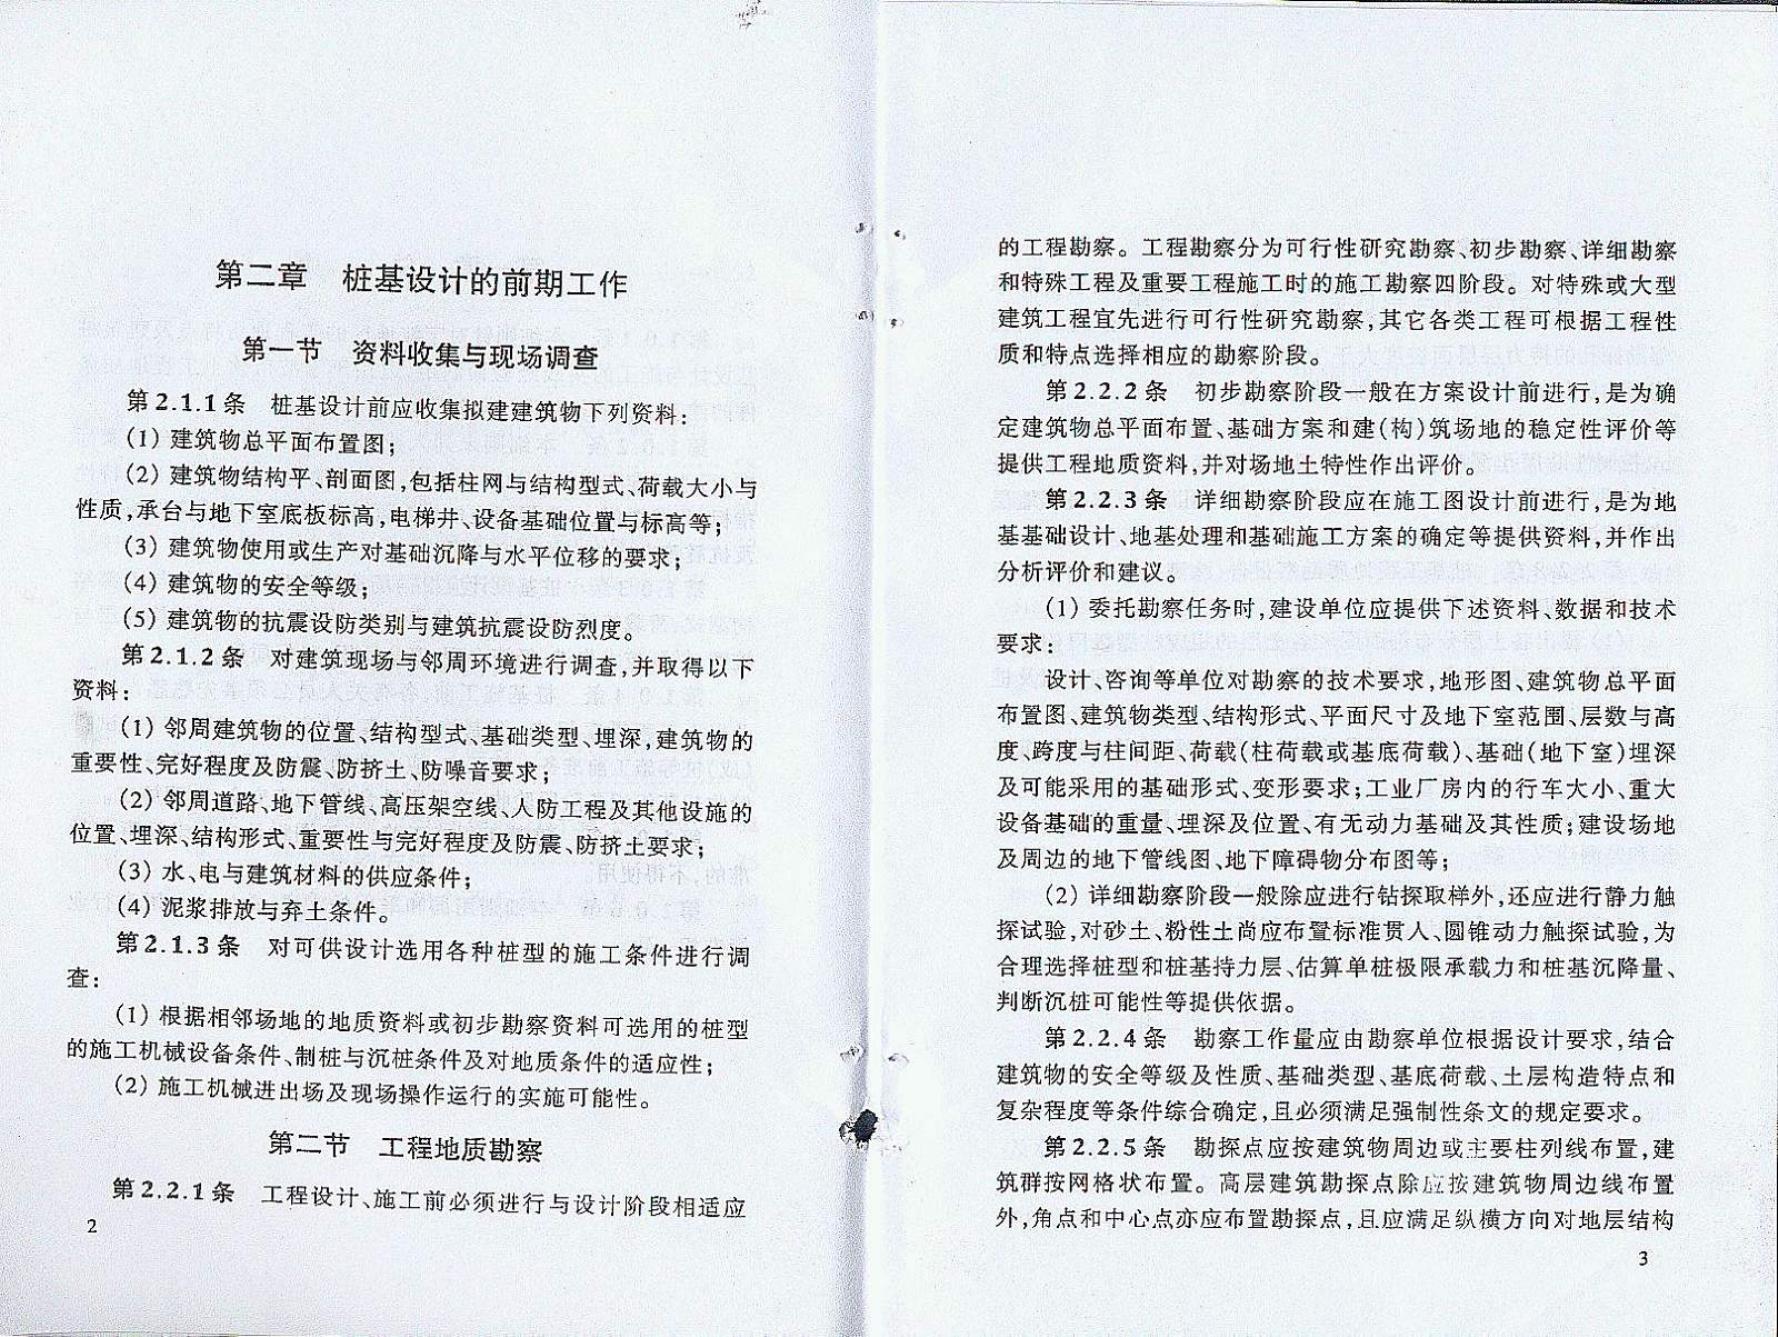 第二章 桩基设计的前期工作
第一节 资料收集与现场调查
第2.1.1条 桩基设计前应收集拟建建筑物下列资料:
(1) 建筑物总平面布置图;
(2) 建筑物结构平、剖面图,包括柱网与结构型式、荷载大小与
性质,承台与地下室底板标高,电梯井、设备基础位置与标高等;
(3) 建筑物使用或生产对基础沉降与水平位移的要求;
(4) 建筑物的安全等级;
(5) 建筑物的抗震设防类别与建筑抗震设防烈度。
第2.1.2条 对建筑现场与邻周环境进行调查,并取得以下
资料:
(1) 邻周建筑物的位置、结构型式、基础类型、埋深,建筑物的
重要性、完好程度及防震、防挤土、防噪音要求;
(2) 邻周道路、地下管线、高压架空线、人防工程及其他设施的
位置、埋深、结构形式、重要性与完好程度及防震、防挤土要求;
(3) 水、电与建筑材料的供应条件;
(4) 泥浆排放与弃土条件。
第2.1.3条 对可供设计选用各种桩型的施工条件进行调
查:
(1) 根据相邻场地的地质资料或初步勘察资料可选用的桩型
的施工机械设备条件、制桩与沉桩条件及对地质条件的适应性;
(2) 施工机械进出场及现场操作运行的实施可能性。
第二节 工程地质勘察
第2.2.1条 工程设计、施工前必须进行与设计阶段相适应
2
的工程勘察。工程勘察分为可行性研究勘察、初步勘察、详细勘察
和特殊工程及重要工程施工时的施工勘察四阶段。对特殊或大型
建筑工程宜先进行可行性研究勘察,其它各类工程可根据工程性
质和特点选择相应的勘察阶段。
第2.2.2条 初步勘察阶段一般在方案设计前进行,是为确
定建筑物总平面布置、基础方案和建(构)筑场地的稳定性评价等
提供工程地质资料,并对场地土特性作出评价。
第2.2.3条 详细勘察阶段应在施工图设计前进行,是为地
基基础设计、地基处理和基础施工方案的确定等提供资料,并作出
分析评价和建议。
(1) 委托勘察任务时,建设单位应提供下述资料、数据和技术
要求:
设计、咨询等单位对勘察的技术要求,地形图、建筑物总平面
布置图、建筑物类型、结构形式、平面尺寸及地下室范围、层数与高
度、跨度与柱间距、荷载(柱荷载或基底荷载)、基础(地下室)埋深
及可能采用的基础形式、变形要求;工业厂房内的行车大小、重大
设备基础的重量、埋深及位置、有无动力基础及其性质;建设场地
及周边的地下管线图、地下障碍物分布图等;
(2) 详细勘察阶段一般除应进行钻探取样外,还应进行静力触
探试验,对砂土、粉性土尚应布置标准贯人、圆锥动力触探试验,为
合理选择桩型和桩基持力层、估算单桩极限承载力和桩基沉降量、
判断沉桩可能性等提供依据。
第2.2.4条 勘察工作量应由勘察单位根据设计要求,结合
建筑物的安全等级及性质、基础类型、基底荷载、土层构造特点和
复杂程度等条件综合确定,且必须满足强制性条文的规定要求。
第2.2.5条 勘探点应按建筑物周边或主要柱列线布置,建
筑群按网格状布置。高层建筑勘探点除应按建筑物周边线布置
外,角点和中心点亦应布置勘探点,且应满足纵横方向对地层结构
3